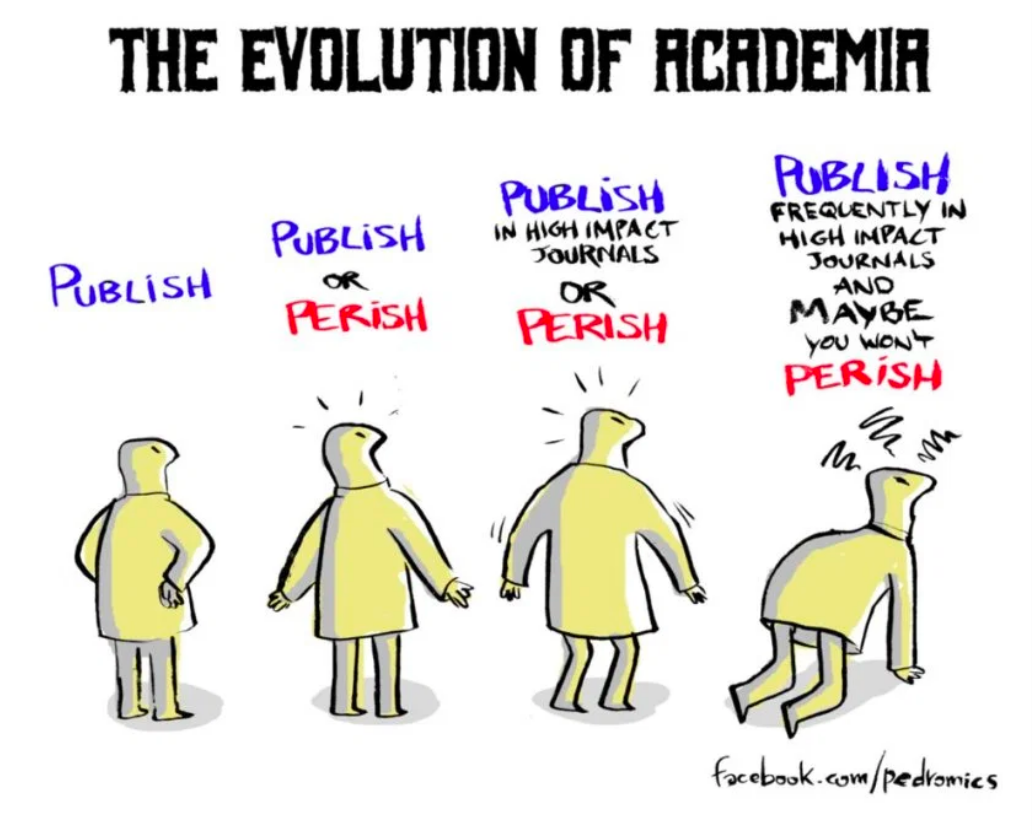 THE EVOLUTION OF ACADEMIA
PUBLISH
PUBLISH
OR
PERISH
PUBLISH
IN HIGH IMPACT
JOURNALS
OR
PERISH
PUBLISH
FREQUENTLY IN
HIGH IMPACT
JOURNALS
AND
MAYBE
YOU WON'T
PERISH
facebook.com/pedromics